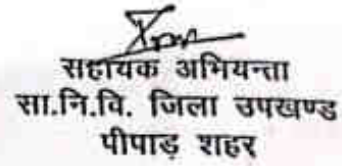 सहायक अभियन्ता
सा.नि.वि. जिला उपखण्ड
पीपाड़ शहर